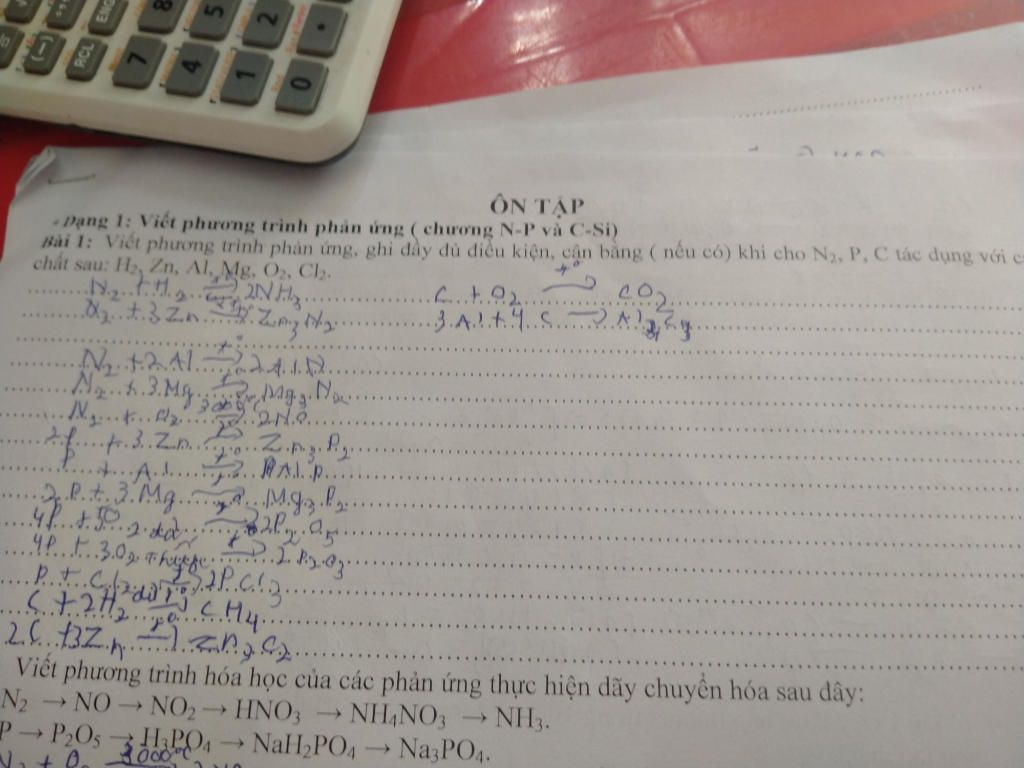 ENG
8
5
2
•
(−)
RCL
7
4
1
0
ÔN TẬP
Dạng 1: Viết phương trình phản ứng ( chương N-P và C-Si)
Bài 1: Viết phương trình phản ứng, ghi đầy đủ điều kiện, cân bằng ( nếu có) khi cho N₂, P, C tác dụng với
chất sau: H₂, Zn, Al, Mg, O₂, Cl₂.
N₂ + H₂ ⇌ 2NH₃
C + O₂ →(t°) CO₂
N₂ + 3Zn →(t°) Zn₃N₂
3Al + 4C → Al₄C₃
N₂ + 2Al →(t°) 2AlN
N₂ + 3Mg →(t°) Mg₃N₂
N₂ + O₂ 2NO
2P + 3Zn →(t°) Zn₃P₂
P + Al →(t°) AlP
2P + 3Mg →(t°) Mg₃P₂
4P + 5O₂ dư → 2P₂O₅
4P + 3O₂ thiếu →(t°) 2P₂O₃
P + Cl₂ → 2PCl₃
C + 2H₂ →(t°) CH₄
2C + 3Zn →(t°) Zn₃C₂
Viết phương trình hóa học của các phản ứng thực hiện dãy chuyển hóa sau đây:
N₂ → NO → NO₂ → HNO₃ → NH₄NO₃ → NH₃.
P → P₂O₅ → H₃PO₄ → NaH₂PO₄ → Na₃PO₄.
3000°C